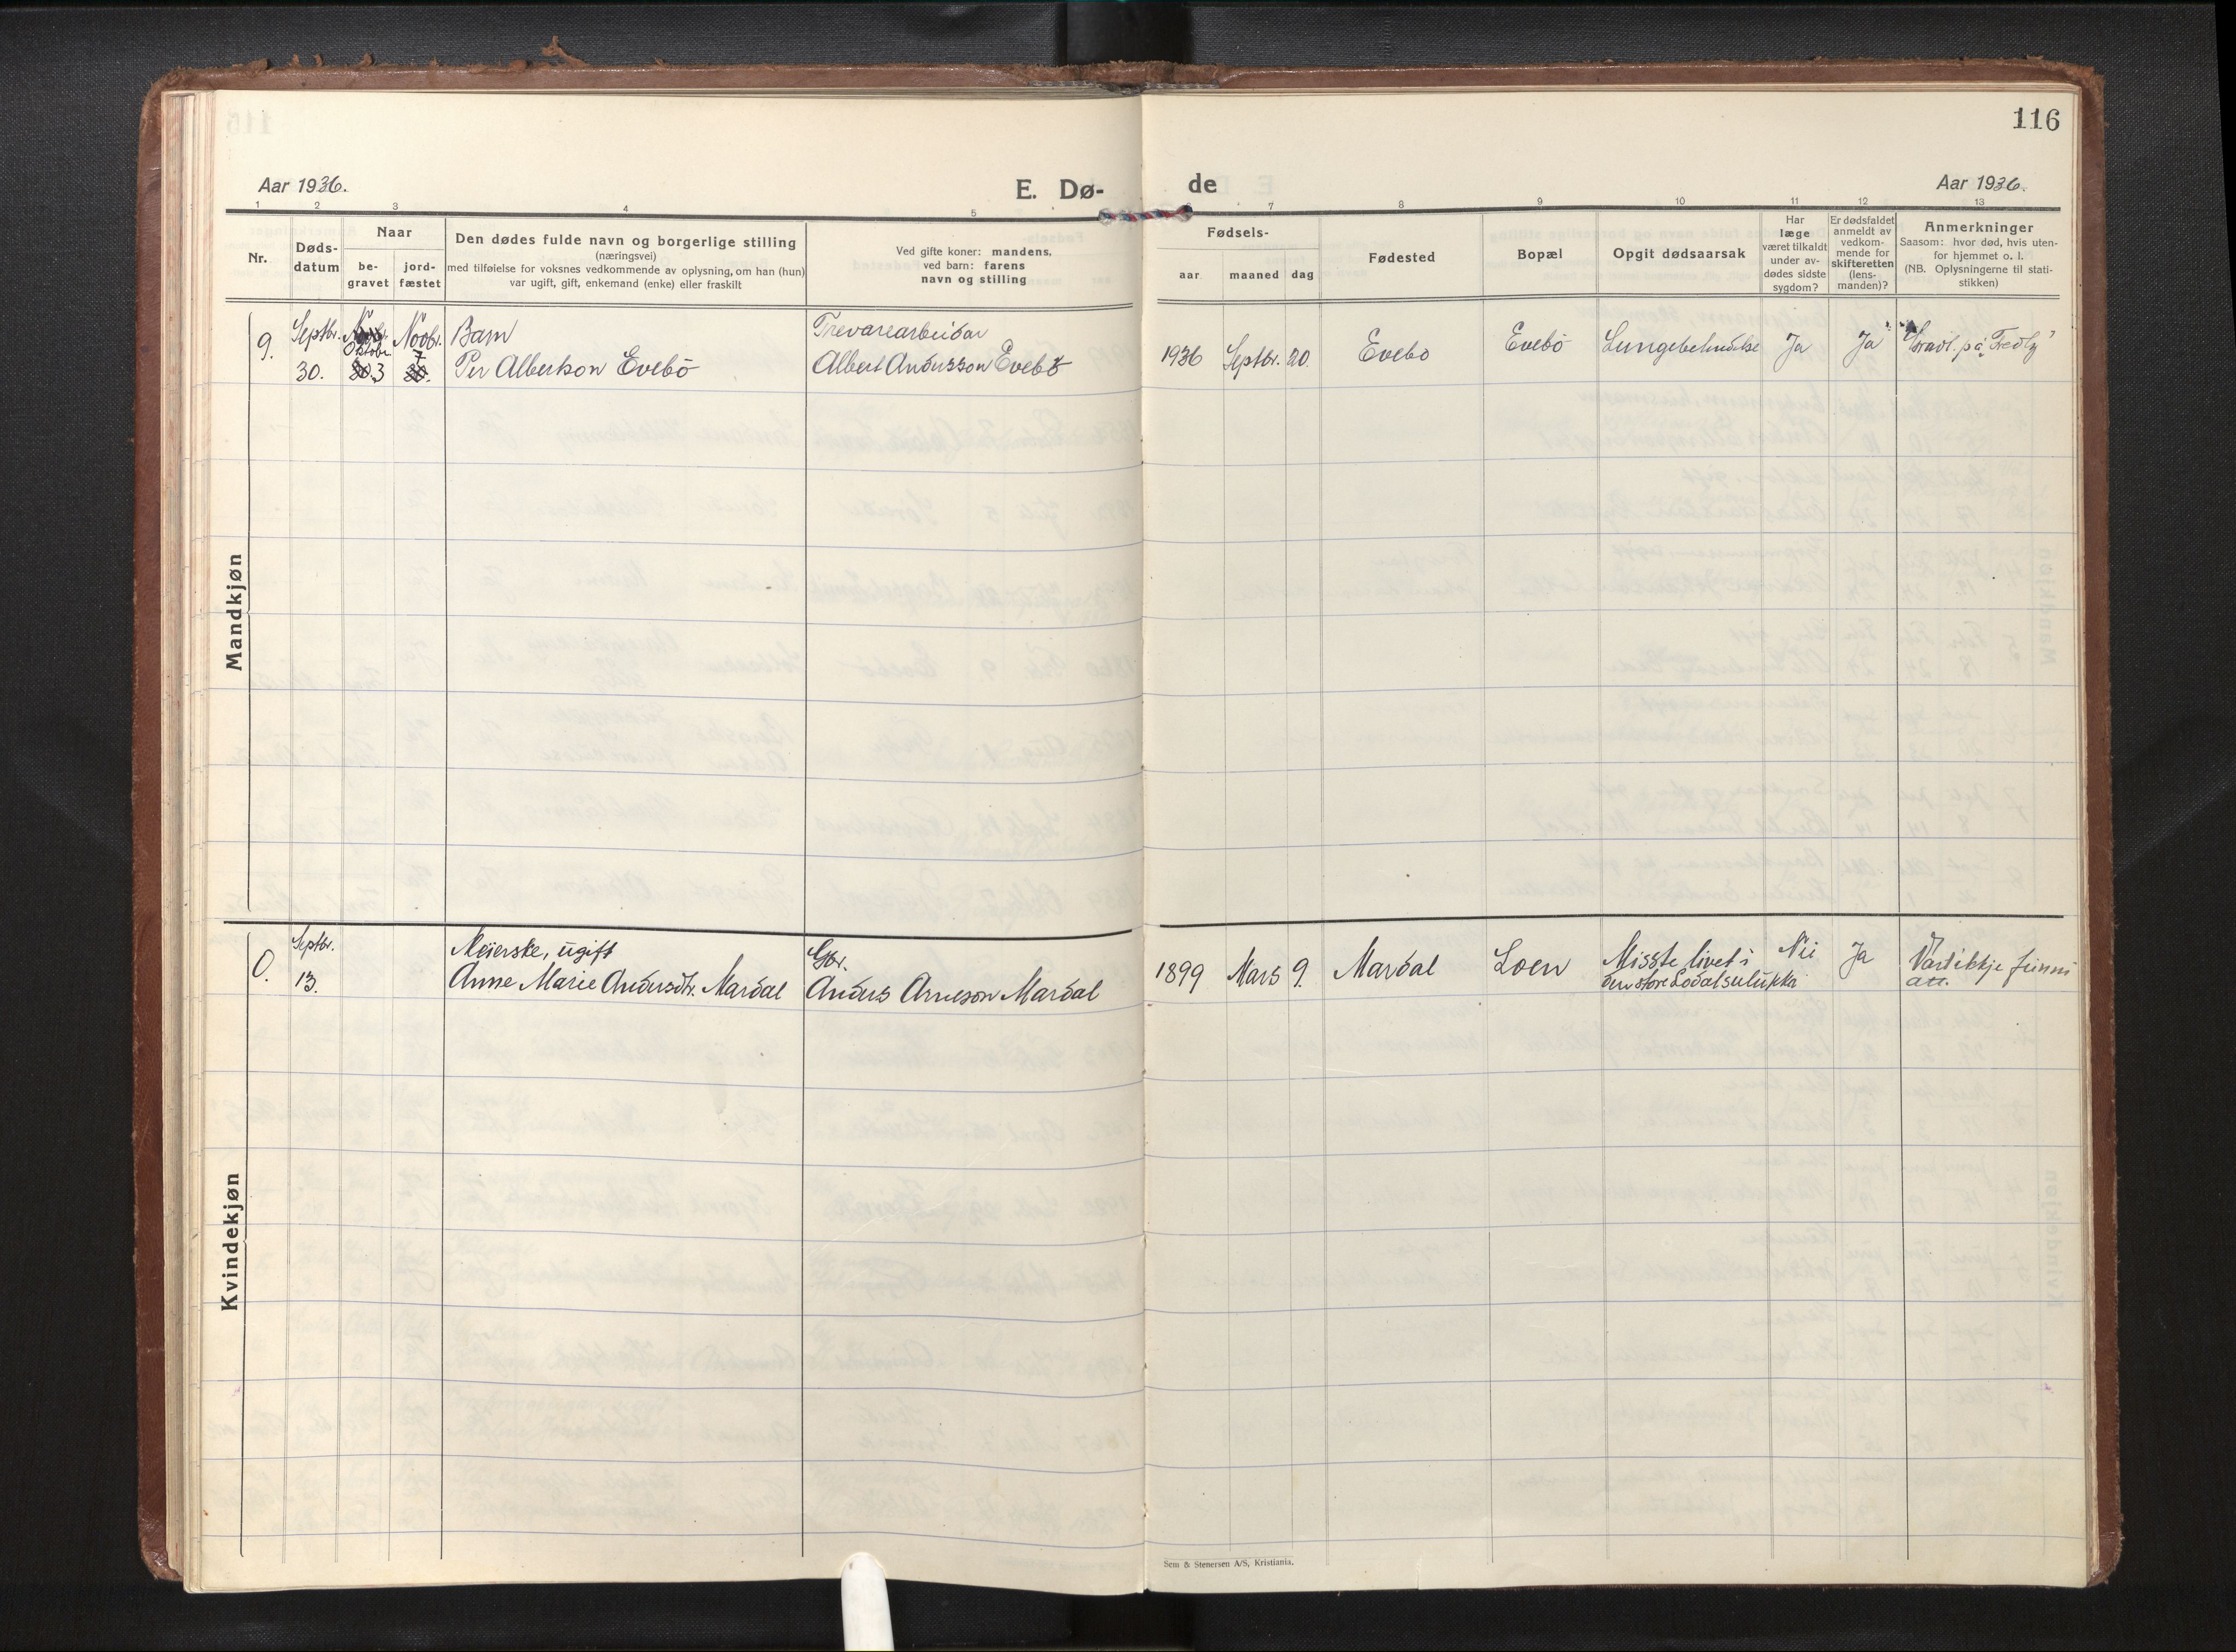 116
Aar 1936.
E. Dø-
de
Aar 1936.
1 2 3 4 5
7 8 9 10 11 12 13
Nr.
Døds-
datum
Naar
be-
gravet
jord-
fæstet
Den dødes fulde navn og borgerlige stilling
(næringsvei)
med tilføielse for voksnes vedkommende av oplysning, om han (hun)
var ugift, gift, enkemand (enke) eller fraskilt
Ved gifte koner: mandens,
ved barn: farens
navn og stilling
Fødsels-
aar
maaned
dag
Fødested
Bopæl
Opgit dødsaarsak
Har
læge
været tilkaldt
under av-
dødes sidste
sygdom?
Er dødsfaldet
anmeldt av
vedkom-
mende for
skifteretten
(lens-
manden)?
Anmerkninger
Saasom: hvor død, hvis uten-
for hjemmet o. l.
(NB. Oplysningerne til stati-
stikken)
Mandkjøn
9.
Septbr.
30.
Oktobr.
3
Novbr.
7
Barn
Per Albertson Evebö
Trevarearbeidar
Albert Andersson Evebö
1936 Septbr. 20.
Evebö
Evebö
Lungebetendelse
Ja
Ja
Gravl. på "Fredly"
Kvindekjøn
0.
Septbr.
13.
Meierske, ugift
Anne Marie Andersdtr. Mardal
Gbr.
Anders Arneson Mardal
1899 Mars 9.
Mardal
Loen
Misste livet i
den store Lodalsulukka
Nei
Ja
Vart ikkje funni
att.
Sem & Stenersen A/S, Kristiania.